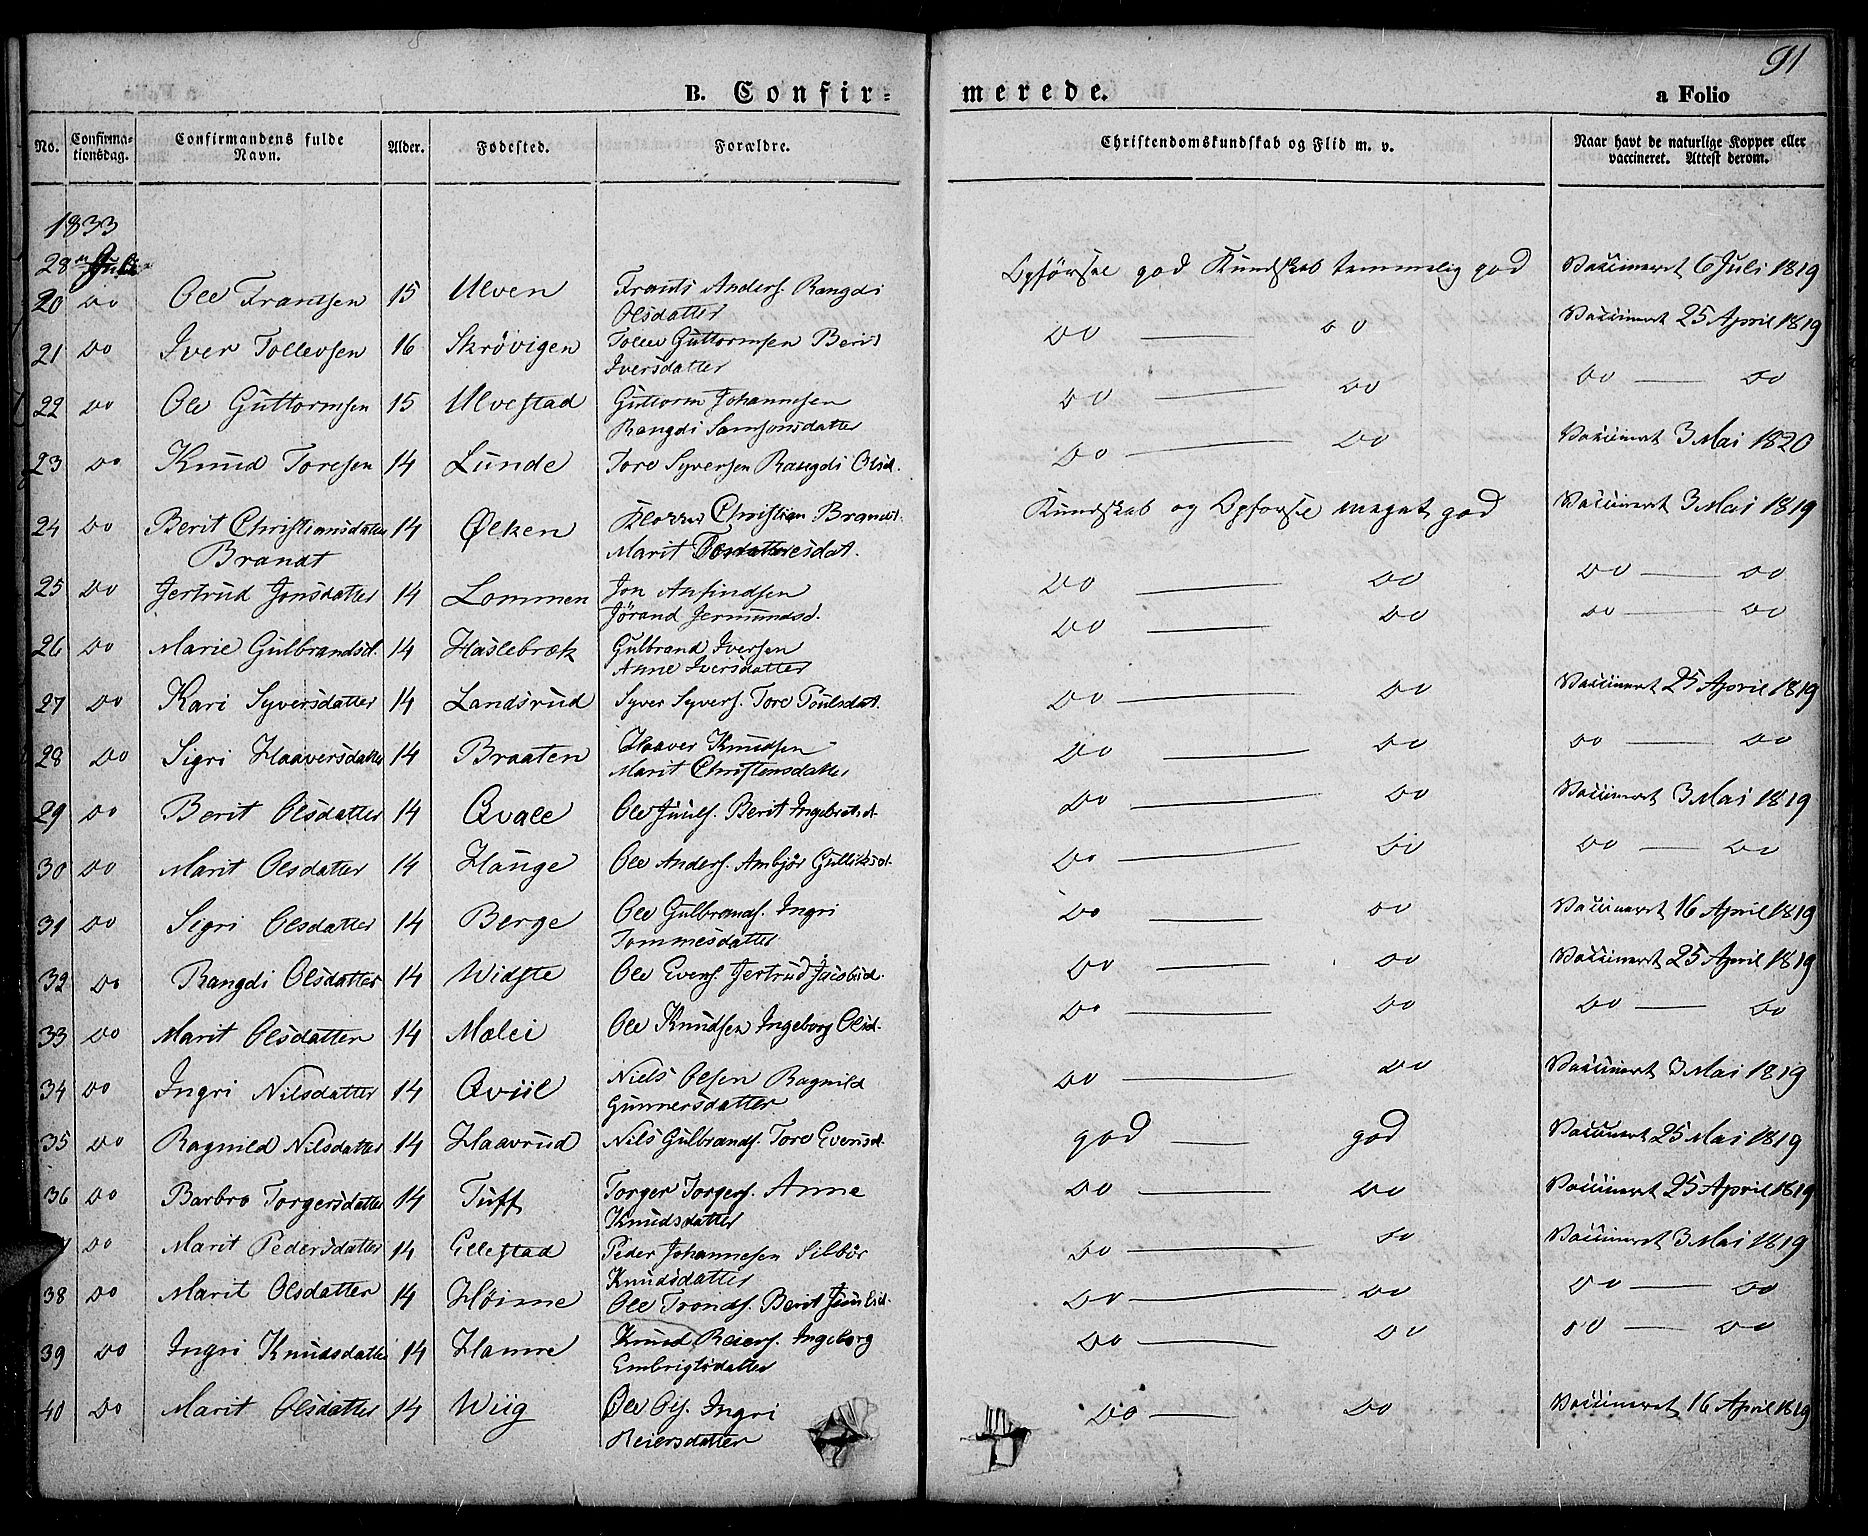 91
B. Confir= merede. a Folio
No. Confirma-tionsdag. Confirmandens fulde Navn. Alder. Fødested. Forældre. Christendomskundskab og Flid m. v. Naar havt de naturlige Kopper eller vaccineret. Attest derom.
1833
28 Juli
20 Do Ole Frantsen 15 Ulven Frants Anders. Rangdi Olsdatter Opførsel god Kundskab temmelig god Vaccineret 6 Juli 1819
21 Do Iver Tollevsen 16 Skrøvigen Tollev Guttormsen Berit Iversdatter Do — Do Vaccineret 25 April 1819
22 Do Ole Guttormsen 15 Ulvestad Guttorm Johannesen Rangdi Samsonsdatter Do — Do Do — Do
23 Do Knud Toresen 14 Lunde Tore Syversen Rangdi Olsd. Do — Do Vaccineret 3 Mai 1820
24 Do Berit Christiansdatter Brandt 14 Ølken Christian Brandt. Marit Kundskab og Opførsel meget god Vaccineret 3 Mai 1819
25 Do Jertrud Jonsdatter 14 Lommen Jon Anfindsen Jørand Jermundsd. Do — Do Do — Do
26 Do Marie Gulbrandsd. 14 Haslebræk Gulbrand Iversen Anne Iversdatter Do — Do Do — Do
27 Do Kari Syversdatter 14 Landsrud Syver Syvers. Tore Poulsdat. Do — Do Vaccineret 25 April 1819
28 Do Sigri Haaversdatter 14 Braaten Haaver Knudsen Marit Christensdatter Do — Do Do — Do
29 Do Berit Olsdatter 14 Qvale Ole Juuls. Berit Ingebretsd. Do — Do Vaccineret 3 Mai 1819
30 Do Marit Olsdatter 14 Hauge Ole Anders. Ambjør Gulliksd. Do — Do Do — Do
31 Do Sigri Olsdatter 14 Berge Ole Gulbrands. Ingri Tommesdatter Do — Do Vaccineret 16 April 1819
32 Do Rangdi Olsdatter 14 Widste Ole Evens. Jertrud Jacobsd. Do — Do Vaccineret 25 April 1819
33 Do Marit Olsdatter 14 Mælei Ole Knudsen Ingeborg Olsd. Do — Do Do — Do
34 Do Ingri Nilsdatter 14 Qviil Niels Olsen Ragnild Gunnersdatter Do — Do Vaccineret 3 Mai 1819
35 Do Ragnild Nilsdatter 14 Haavrud Nils Gulbrands. Tore Evensd. god — god Vaccineret 25 Mai 1819
36 Do Barbro Torgersdatter 14 Tuff Torger Torgers. Anne Knudsdatter Do — Do Vaccineret 25 April 1819
Do Marit Pedersdatter 14 Ellestad Peder Johannesen Silbør Knudsdatter Do — Do Vaccineret 3 Mai 1819
38 Do Marit Olsdatter 14 Høinne Ole Tronds. Berit Juulsd. Do — Do Do — Do
39 Do Ingri Knudsdatter 14 Hamre Knud Reiers. Ingeborg Embrigtsdatter Do — Do Do — Do
40 Do Marit Olsdatter 14 Wiig Ole Ols. Ingri Reiersdatter Do — Do Vaccineret 16 April 1819